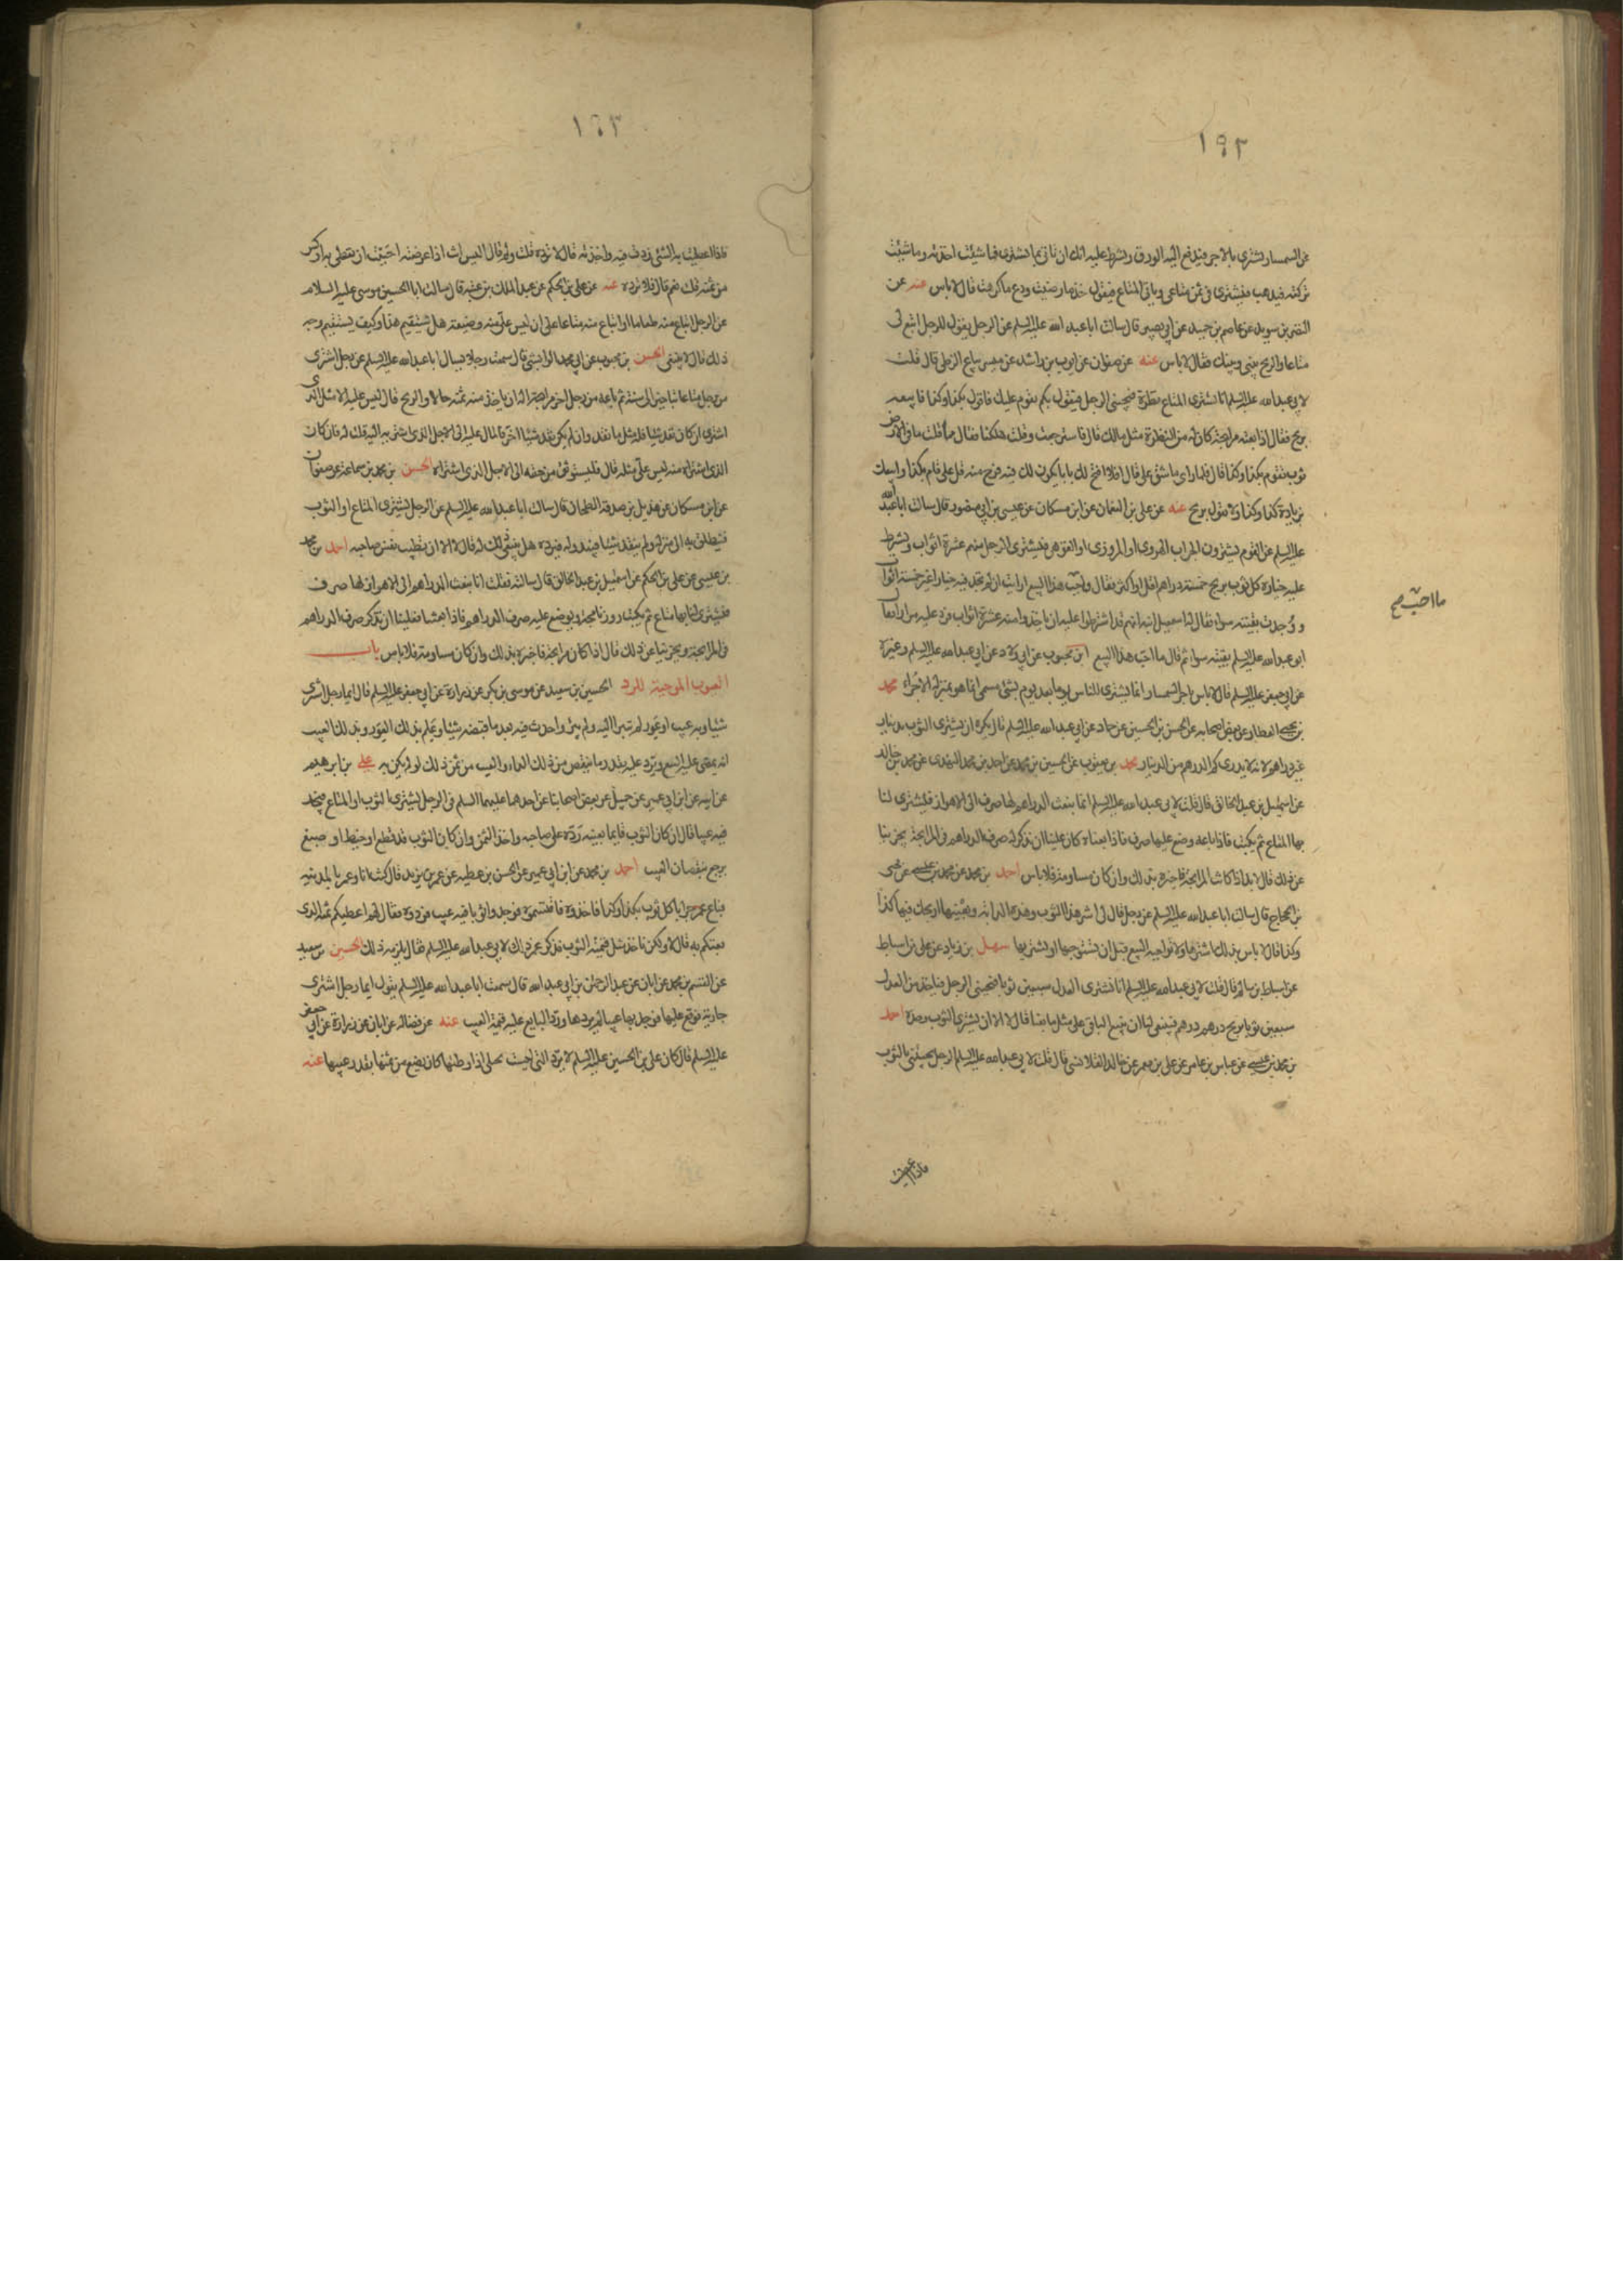 ١٩٢
عن السمسار يشتري بالاجر فيدفع اليه الورق ويشترط عليه انك ان تاتي بما تشتري فما شئت اخذته وما شئت
تركته فيذهب فيشتري ثم ياتي بالمتاع فيقول خذ ما رضيت ودع ما كرهت قال لا باس عنه عن
النضر بن سويد عن عاصم بن حميد عن ابي بصير قال سالت ابا عبد الله عليه السلم عن الرجل يقول للرجل ابتع لي
متاعا والربح بيني وبينك فقال لا باس عنه عن صفوان عن ايوب بن راشد عن ميسر بياع الزطي قال قلت
لابي عبد الله عليه السلم انا نشتري المتاع نظرة فيجيئني الرجل فيقول بكم تقوم عليك فاقول بكذا وكذا فابيعه
بربح فقال اذا بعته مرابحة كان له من النظرة مثل مالك قال فاسترجعت وقلت هلكنا فقال مما قلت ما في الارض
ثوب يقوم بكذا وكذا قال فلما راى ما شق علي قال افلا افتح لك بابا يكون لك فيه فرج منه قل علي قام بكذا وابيعك
بزيادة كذا وكذا ولا تقول بربح عنه عن علي بن النعمان عن ابن مسكان عن عيسى بن ابي منصور قال سالت ابا عبد الله
عليه السلم عن القوم يشترون الجراب الهروي او المروزي او القوهي فيشتري الرجل منهم عشرة اثواب ويشترط
عليه خياره كل ثوب بربح خمسة دراهم اقل او اكثر فقال ما احب هذا البيع ارايت ان لم تجد فيه خيارا غير خمسة اثواب
ووجدت بقيته سواء فقال له اسمعيل ابنه انهم قد اشترطوا عليه ان ياخذوا منه عشرة اثواب فرد عليه مرارا فقال
ابو عبد الله عليه السلم بقيته سواء ثم قال ما احب هذا البيع ابن محبوب عن ابي ولاد عن ابي عبد الله عليه السلم وغيره
عن ابي جعفر عليه السلم قال لا باس باجر السمسار انما يشتري للناس يوما بعد يوم بشئ مسمى انما هو بمنزلة الاجراء محمد
بن يحيى العطار عن بعض اصحابه عن الحسن بن الحسين عن حماد عن ابي عبد الله عليه السلم قال يكره ان يشتري الثوب بدينار
غير درهم لانه لا يدري كم الدرهم من الدينار محمد بن يعقوب عن الحسين بن محمد عن احمد بن محمد النهدي عن محمد بن خالد
عن اسمعيل بن عبد الخالق قال قلت لابي عبد الله عليه السلم انا نبعث الدراهم لها صرف الى الاهواز فيشتري لنا
بها المتاع ثم نكتب فاذا باعه وضع عليها صرف فاذا بعناه كان علينا ان نذكر له صرف الدراهم في المرابحة يجزينا
عن ذلك قال لا بل اذا كانت المرابحة فاخبره بذلك وان كان مساومة فلا باس احمد بن محمد عن محمد بن عيسى عن يحيى
بن الحجاج قال سالت ابا عبد الله عليه السلم عن رجل قال لي اشتر هذا الثوب وهذه الدابة وبعنيها اربحك فيها كذا
وكذا قال لا باس بذلك اشترها ولا تواجبه البيع قبل ان تستوجبها او تشتريها سهل بن زياد عن علي بن اسباط
عن اسباط بن سالم قال قلت لابي عبد الله عليه السلم انا نشتري العدل سبعين ثوبا فيجيئني الرجل فياخذ من العدل
سبعين ثوبا بربح درهم درهم فينبغي لنا ان نبيع الباقي على مثل ما بعنا قال لا الا ان يشتري الثوب وحده احمد
بن محمد بن عيسى عن عباس بن عامر عن علي بن معمر عن خالد القلانسي قال قلت لابي عبد الله عليه السلم الرجل يجيئني بالثوب
ما احب صح
١٩٣
فاذا اعطيت به الشئ زدت فيه واخذته قال لا تزده قلت ولم قال اليس انت اذا عرضته احببت ان تعطى به اوكس
من ثمنه قلت نعم قال فلا تزده عنه عن علي بن الحكم عن عبد الملك بن عتبه قال سالت ابا الحسن موسى عليه السلام
عن الرجل ابتاع منه طعاما او ابتاع منه متاعا على ان ليس علي منه وضيعة هل يستقيم هذا وكيف يستقيم وجه
ذلك قال لا ينبغي الحسن بن محبوب عن ابي محمد الوابشي قال سمعت رجلا يسال ابا عبد الله عليه السلم عن رجل اشترى
من رجل متاعا بتاخير الى سنة ثم باعه من رجل اخر مرابحة اله ان ياخذ منه ثمنه حالا والربح قال ليس عليه الا مثل الذي
اشترى ان كان نقد شيئا فله مثل ما نقد وان لم يكن نقد شيئا اخر فالمال عليه الى الاجل الذي اشترى به اليه قلت له فان كان
الذي اشتراه منه ليس علي مثله قال فليستوثق من حقه الى الاجل الذي اشتراه الحسن بن محمد بن سماعة عن صفوان
عن ابن مسكان عن هذيل بن صدقه الطحان قال سالت ابا عبد الله عليه السلم عن الرجل يشتري المتاع او الثوب
فينطلق به الى منزله ولم ينقد شيئا فيبدو له فيرده هل ينبغي ذلك له قال لا الا ان تطيب نفس صاحبه احمد بن محمد
بن عيسى عن علي بن الحكم عن اسمعيل بن عبد الخالق قال سالته فقلت انا نبعث الدراهم الى الاهواز لها صرف
فيشترى لنا بها متاع ثم نكتب روزنامجة ويوضع عليه صرف الدراهم فاذا بعنا فعلينا ان نذكر صرف الدراهم
في المرابحة ويجزينا عن ذلك قال اذا كان مرابحة فاخبره بذلك وان كان مساومة فلا باس باب
العيوب الموجبة للرد الحسين بن سعيد عن موسى بن بكر عن زرارة عن ابي جعفر عليه السلم قال ايما رجل اشترى
شيئا وبه عيب او عوار لم تبرأ اليه ولم يبين واحدث فيه بعد ما قبضه شيئا وعلم بذلك العوار وبذلك العيب
انه يمضى عليه البيع ويرد عليه بقدر ما ينقص من ذلك الداء والعيب من ثمن ذلك لو لم يكن به علي بن ابرهيم
عن ابيه عن ابن ابي عمير عن جميل عن بعض اصحابنا عن احدهما عليهما السلم في الرجل يشتري الثوب او المتاع فيجد
فيه عيبا قال ان كان الثوب قايما بعينه رده على صاحبه واخذ الثمن وان كان الثوب قد قطع او خيط او صبغ
يرجع بنقصان العيب احمد بن محمد عن ابن ابي عمير عن الحسن بن عطيه عن عمر بن يزيد قال كنت انا وعمر بالمدينه
فباع عمر جرابا كل ثوب بكذا وكذا فاخذوه فاقتسموه فوجدوا ثوبا فيه عيب فردوه فقال لهم اعطيكم ثمنه الذي
بعتكم به قال لا ولكن ناخذ مثل قيمة الثوب فذكر عمر ذلك لابي عبد الله عليه السلم فقال يلزمه ذلك الحسين بن سعيد
عن القسم بن محمد عن ابان عن عبد الرحمن بن ابي عبد الله قال سمعت ابا عبد الله عليه السلم يقول ايما رجل اشترى
جارية فوقع عليها فوجد بها عيبا لم يردها ورد البايع عليه قيمة العيب عنه عن فضاله عن ابان عن زرارة عن ابي جعفر
عليه السلم قال كان علي بن الحسين عليه السلم لا يرد التي ليست بحبلى اذا وطئها كان يضع من ثمنها بقدر عيبها عنه
فاذا اعطيت